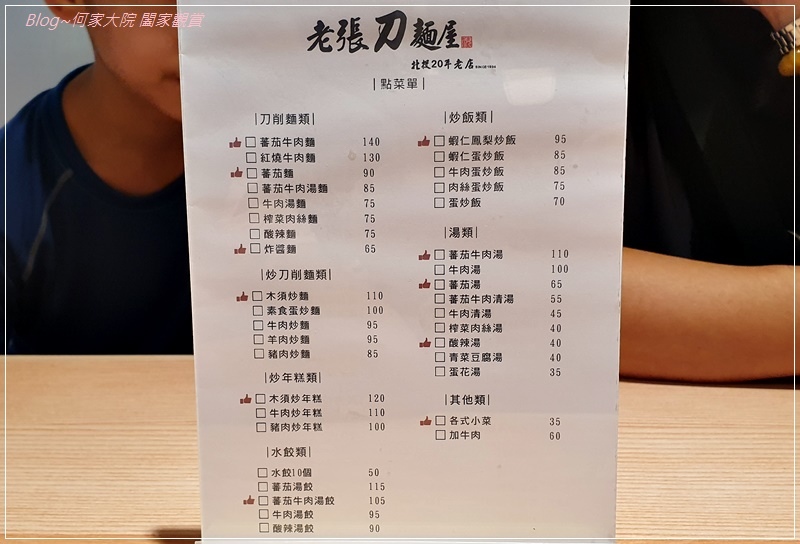 Blog~何家大院 闔家觀賞
老張刀麵屋
北投20年老店
|點菜單|
|刀削麵類|
蕃茄牛肉麵 140
紅燒牛肉麵 130
蕃茄麵 90
蕃茄牛肉湯麵 85
牛肉湯麵 75
榨菜肉絲麵 75
酸辣麵 75
炸醬麵 65
|炒刀削麵類|
木須炒麵 110
素食蛋炒麵 100
牛肉炒麵 95
羊肉炒麵 95
豬肉炒麵 85
|炒年糕類|
木須炒年糕 120
牛肉炒年糕 110
豬肉炒年糕 100
|水餃類|
水餃10個 50
蕃茄湯餃 115
蕃茄牛肉湯餃 105
牛肉湯餃 95
酸辣湯餃 90
|炒飯類|
蝦仁鳳梨炒飯 95
蝦仁蛋炒飯 85
牛肉蛋炒飯 85
肉絲蛋炒飯 75
蛋炒飯 70
|湯類|
蕃茄牛肉湯 110
牛肉湯 100
蕃茄湯 65
蕃茄牛肉清湯 55
牛肉清湯 45
榨菜肉絲湯 40
酸辣湯 40
青菜豆腐湯 40
蛋花湯 35
|其他類|
各式小菜 35
加牛肉 60